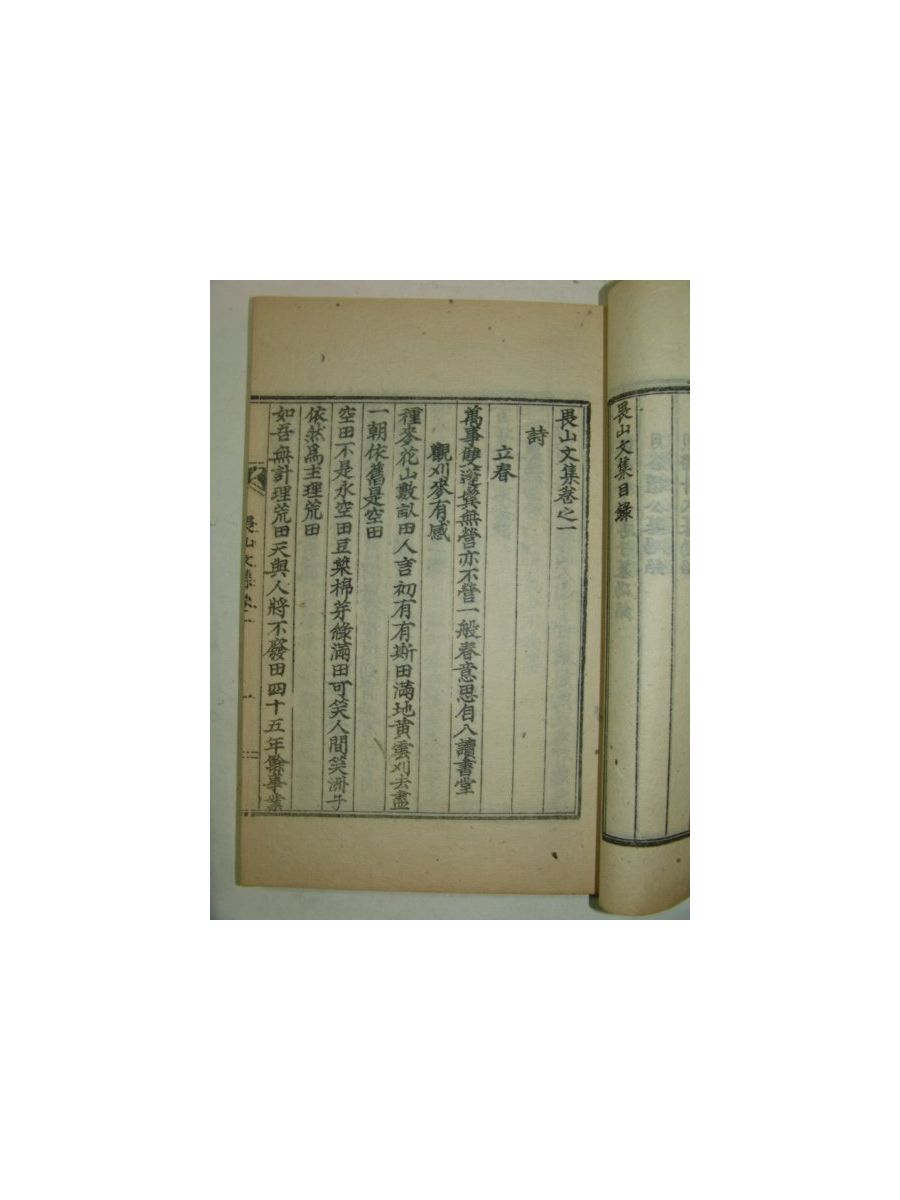 畏山文集目錄
畏山文集卷之一
詩
立春
萬事雙澄鬂無營亦不營一般春意思自入讀書堂
觀刈麥有感
種麥花山數畝田人言初有有斯田滿地黃雲刈去盡
一朝依舊是空田
空田不是永空田豆葉棉芽綠滿田可笑人間笑洲子
依然爲主理荒田
如吾無計理荒田天與人將不廢田四十五年餘事業
畏山文集卷之一 一